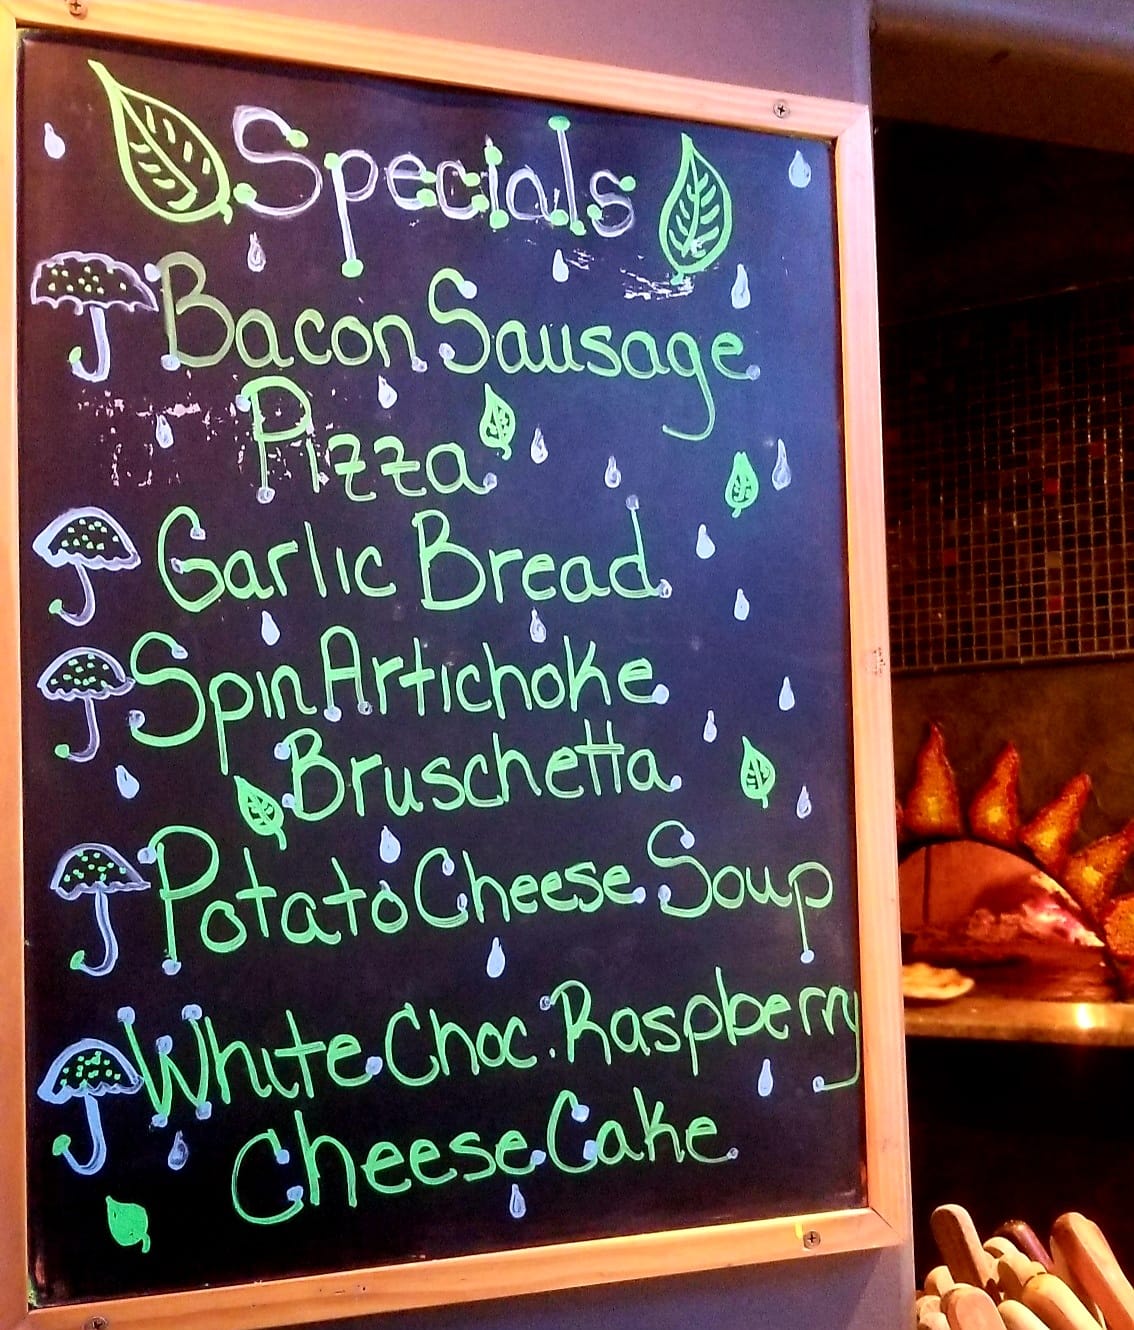 Specials
Bacon Sausage
Pizza
Garlic Bread
Spin Artichoke
Bruschetta
Potato Cheese Soup
White Choc. Raspberry
Cheese Cake